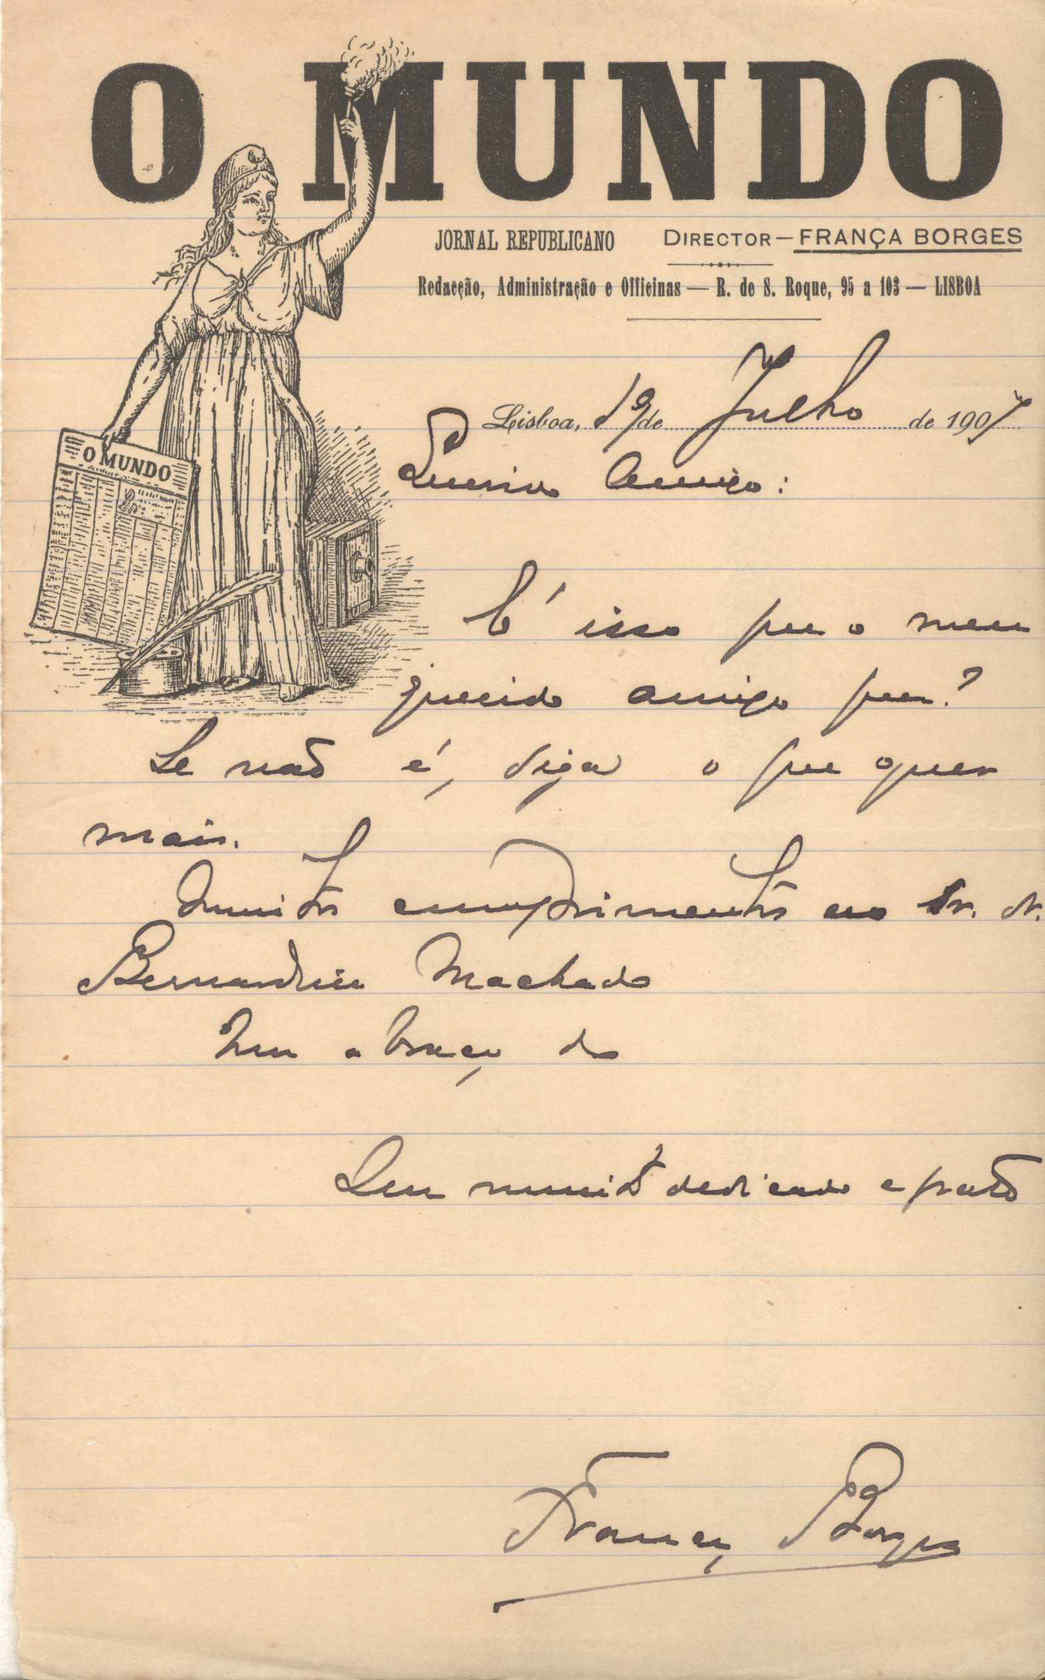 O MUNDO
JORNAL REPUBLICANO DIRECTOR — FRANÇA BORGES
Redacção, Administração e Officinas — R. de S. Roque, 95 a 103 — LISBOA
Lisboa, 19 de Julho de 1907
Querido Amigo:
O MUNDO
É isso que o meu
querido amigo quer?
Se não é, diga o que quer
mais.
Muitos cumprimentos ao Sr. dr.
Bernardino Machado
Um abraço do
Seu muito dedicado e grato
França Borges